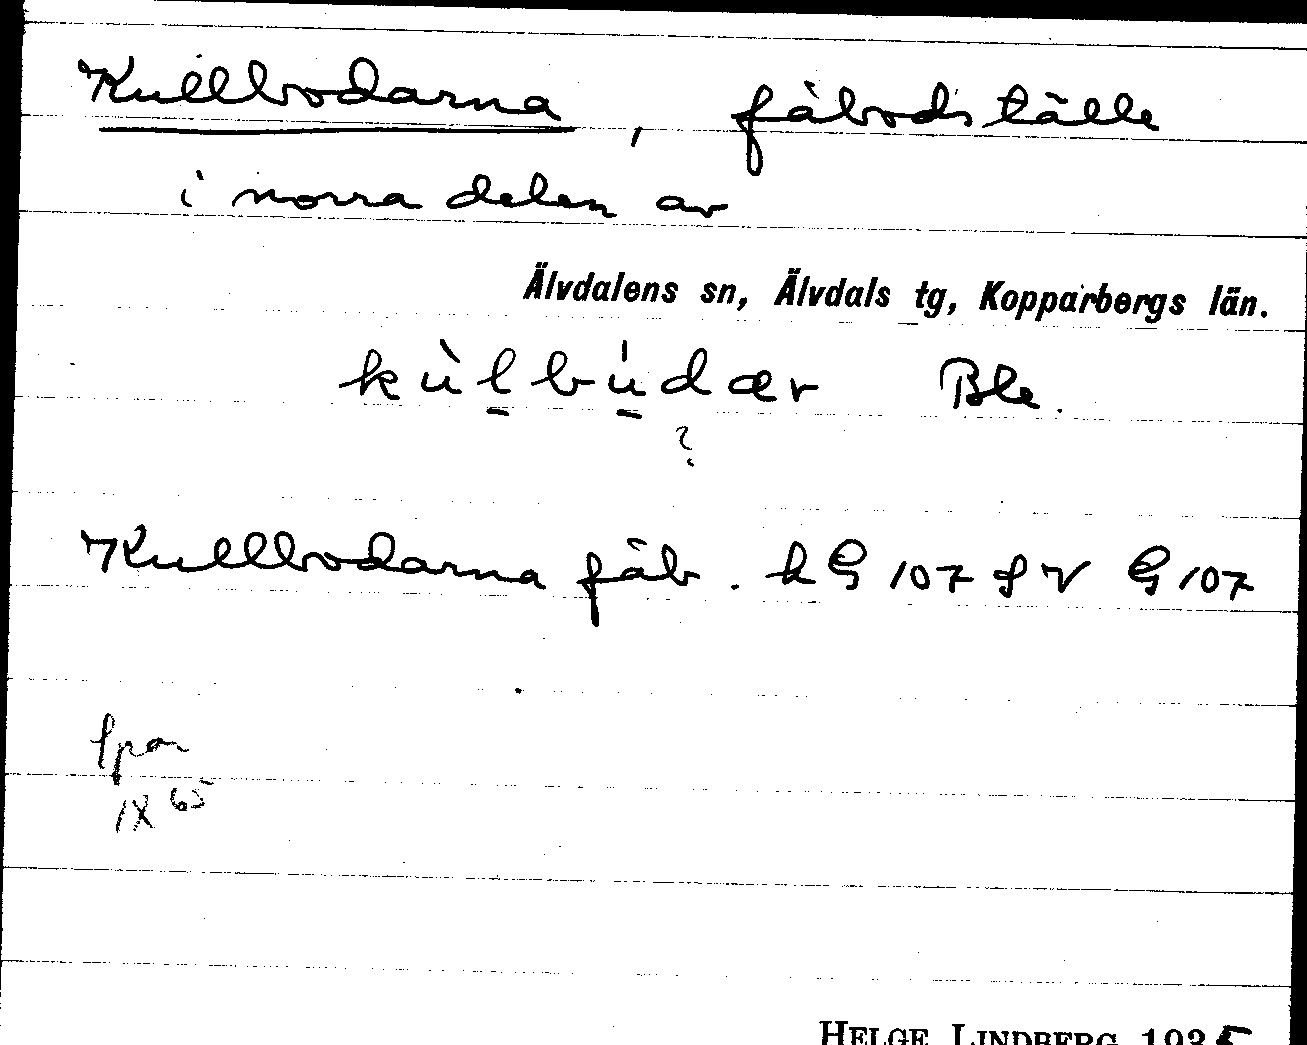 Kullbodarna, fäbodställe
i norra delen av
Älvdalens sn, Älvdals tg, Kopparbergs län.
kùlbu̇dær Ble.
?
Kullbodarna fäb. k G 107 S V G 107
IX 65
HELGE LINDBERG 1935